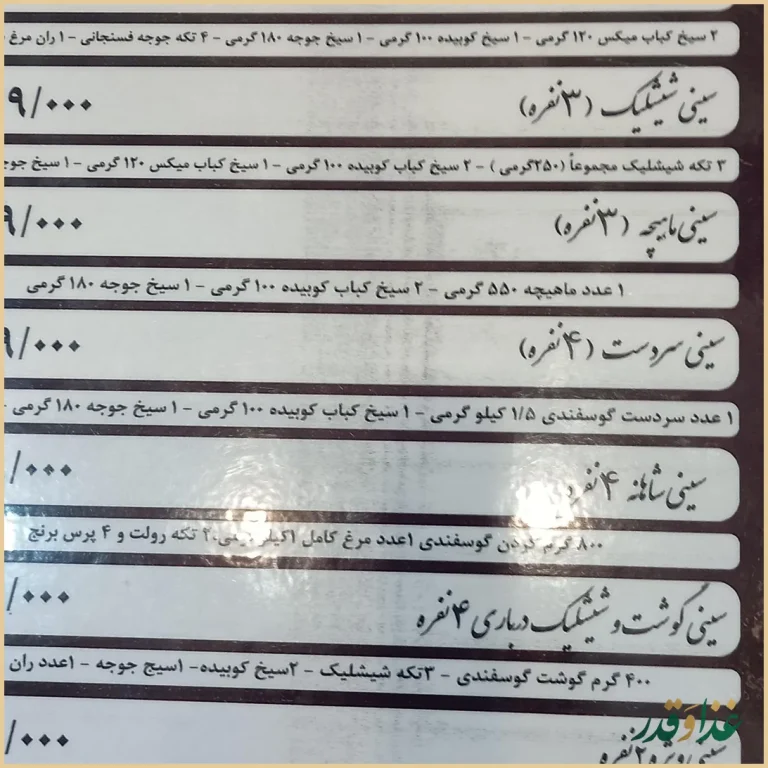 ۲ سیخ کباب میکس ۱۲۰ گرمی - ۱ سیخ کوبیده ۱۰۰ گرمی - ۱ سیخ جوجه ۱۸۰ گرمی - ۴ تکه جوجه فسنجانی - ۱ ران مرغ
سینی شیشلیک (۳نفره) ۹/۰۰۰
۳ تکه شیشلیک مجموعاً (۲۵۰گرمی) - ۲ سیخ کباب کوبیده ۱۰۰ گرمی - ۱ سیخ کباب میکس ۱۲۰ گرمی - ۱ سیخ
سینی ماهیچه (۳نفره) ۹/۰۰۰
۱ عدد ماهیچه ۵۵۰ گرمی - ۲ سیخ کباب کوبیده ۱۰۰ گرمی - ۱ سیخ جوجه ۱۸۰ گرمی
سینی سردست (۴نفره) ۹/۰۰۰
۱ عدد سردست گوسفندی ۱/۵ کیلو گرمی - ۱ سیخ کباب کوبیده ۱۰۰ گرمی - ۱ سیخ جوجه ۱۸۰ گرمی -
سینی شاهانه ۴ نفره /۰۰۰
۸۰۰ گرم گردن گوسفندی ۱عدد مرغ کامل ۲ تکه رولت و ۴ پرس برنج
سینی گوشت و شیشلیک درباری ۴نفره /۰۰۰
۴۰۰ گرم گوشت گوسفندی - ۳تکه شیشلیک - ۲سیخ کوبیده- ۱سیج جوجه - ۱عدد ران
/۰۰۰
غذا و قدر